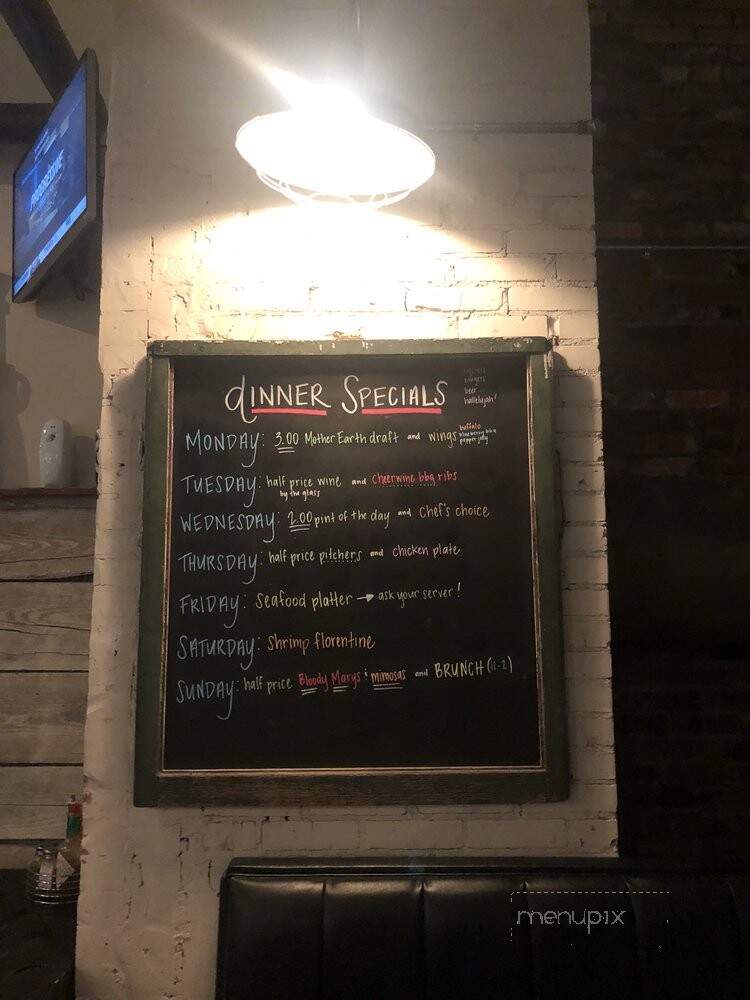 PROGRESSIVE
dINNER SPECIALS
burgers
beer
hallelujah!
MONDAY: 3.00 Mother Earth draft and wings buffalo
blueberry bbq
pepper jelly
TUESDAY: half price wine and cheerwine bbq ribs
by the glass
WEDNESDAY: 2.00 pint of the day and chef's choice
THURSDAY: half price pitchers and chicken plate
FRIDAY: Seafood platter → ask your server!
SATURDAY: Shrimp florentine
SUNDAY: half price Bloody Marys & mimosas and BRUNCH (11-2)
menupix